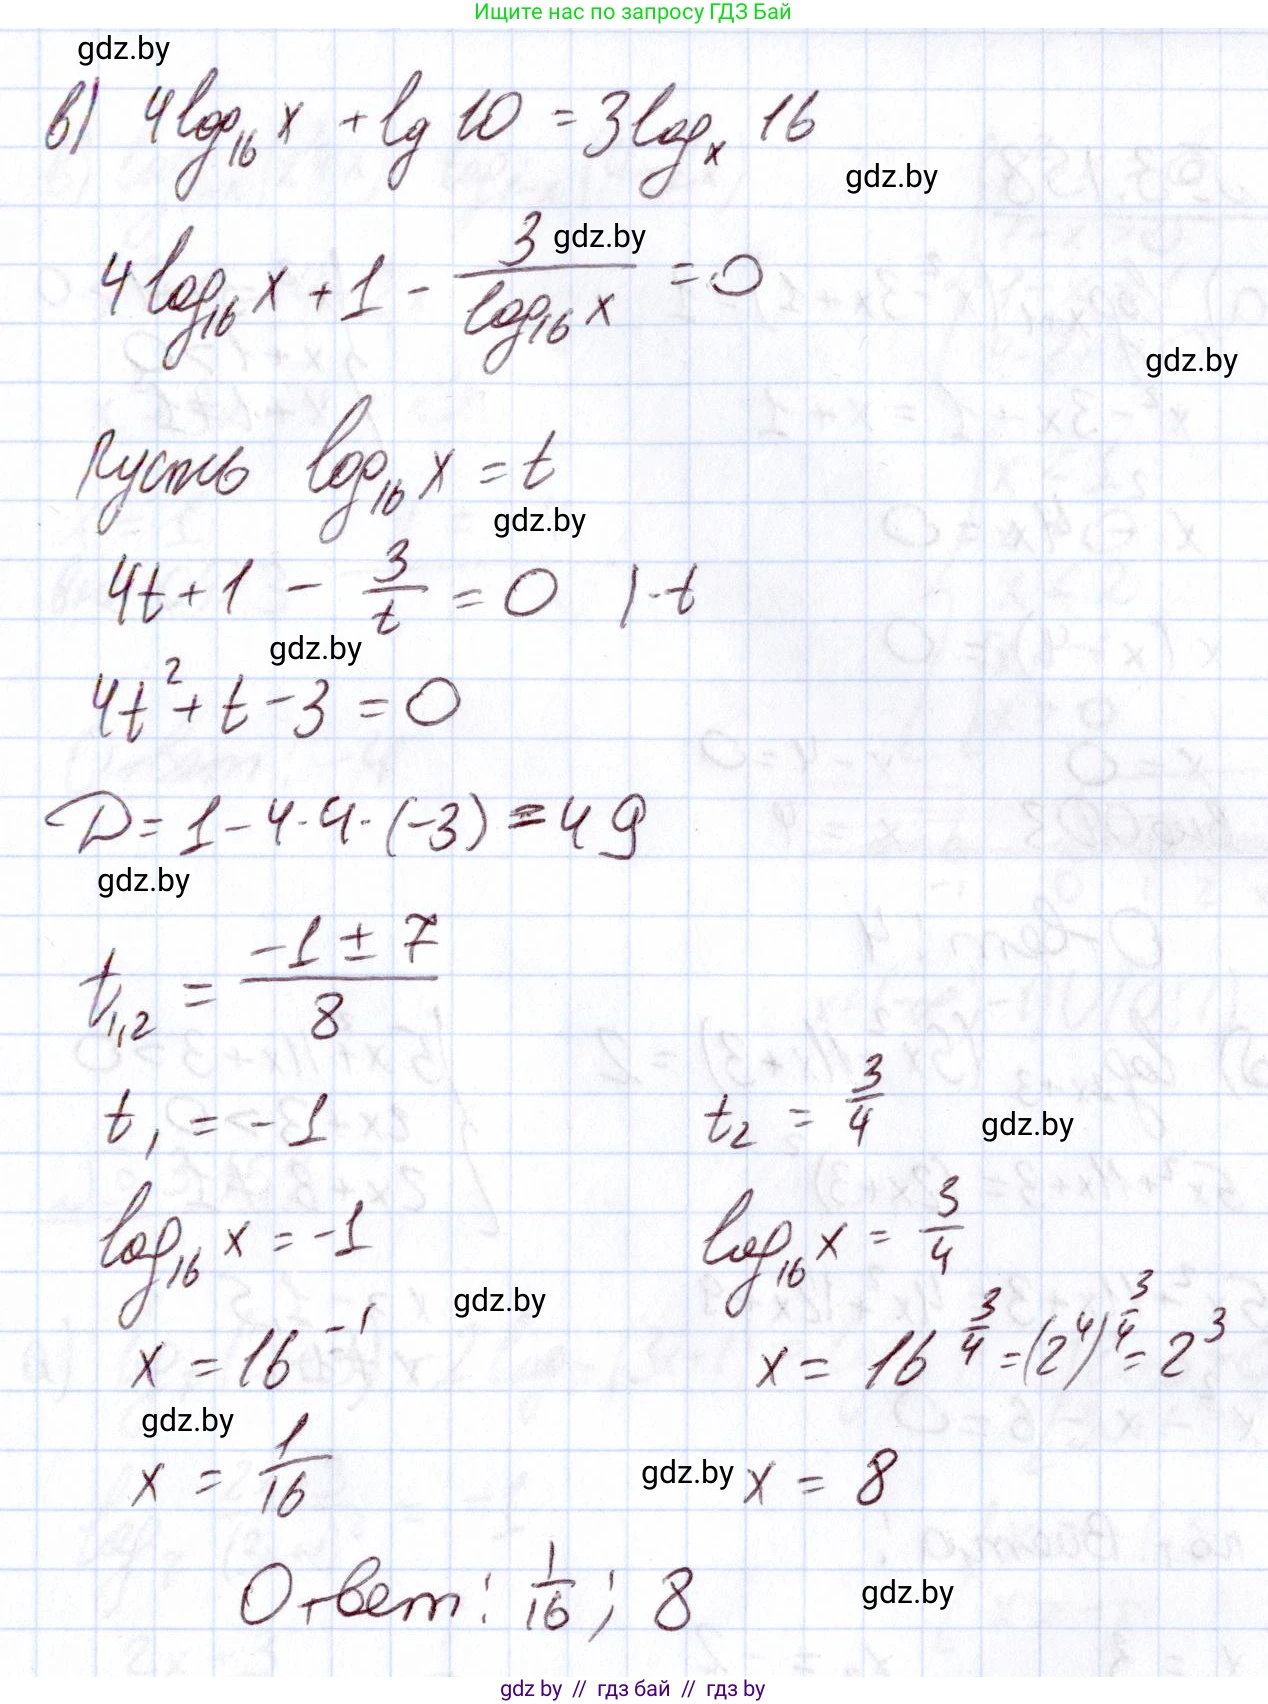 Ищите нас по запросу ГДЗ Бай
gdz.by
в) 4log₁₆ x + lg 10 = 3logₓ 16
gdz.by
4log₁₆ x + 1 - 3/(log₁₆ x) = 0
gdz.by
gdz.by
Пусть log₁₆ x = t
gdz.by
4t + 1 - 3/t = 0 | · t
gdz.by
4t² + t - 3 = 0
D = 1 - 4 · 4 · (-3) = 49
gdz.by
t₁,₂ = (-1 ± 7)/8
t₁ = -1 t₂ = 3/4
gdz.by
log₁₆ x = -1 log₁₆ x = 3/4
gdz.by
x = 16⁻¹ x = 16^(3/4) = (2⁴)^(3/4) = 2³
gdz.by
x = 1/16 x = 8
gdz.by
Ответ: 1/16; 8
gdz.by
gdz by // гдз бай // гдз by